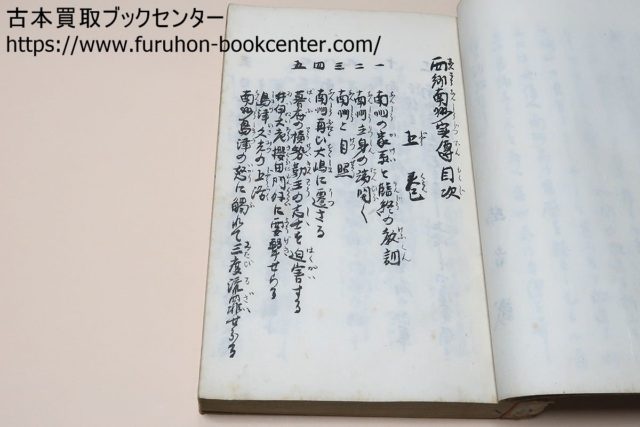 古本買取ブックセンター
https://www.furuhon-bookcenter.com/
西郷南洲実傳目次
上巻
一 南洲の家系と臨終の教訓
二 南洲立身の端開く
三 南洲と月照
四 南洲再び大嶋に遷さる
五 幕府の権勢勤王の志士を迫害する
井伊大老櫻田門外に要撃せらる
島津久光の上洛
南洲島津の怒に觸れて三度流罪せらる